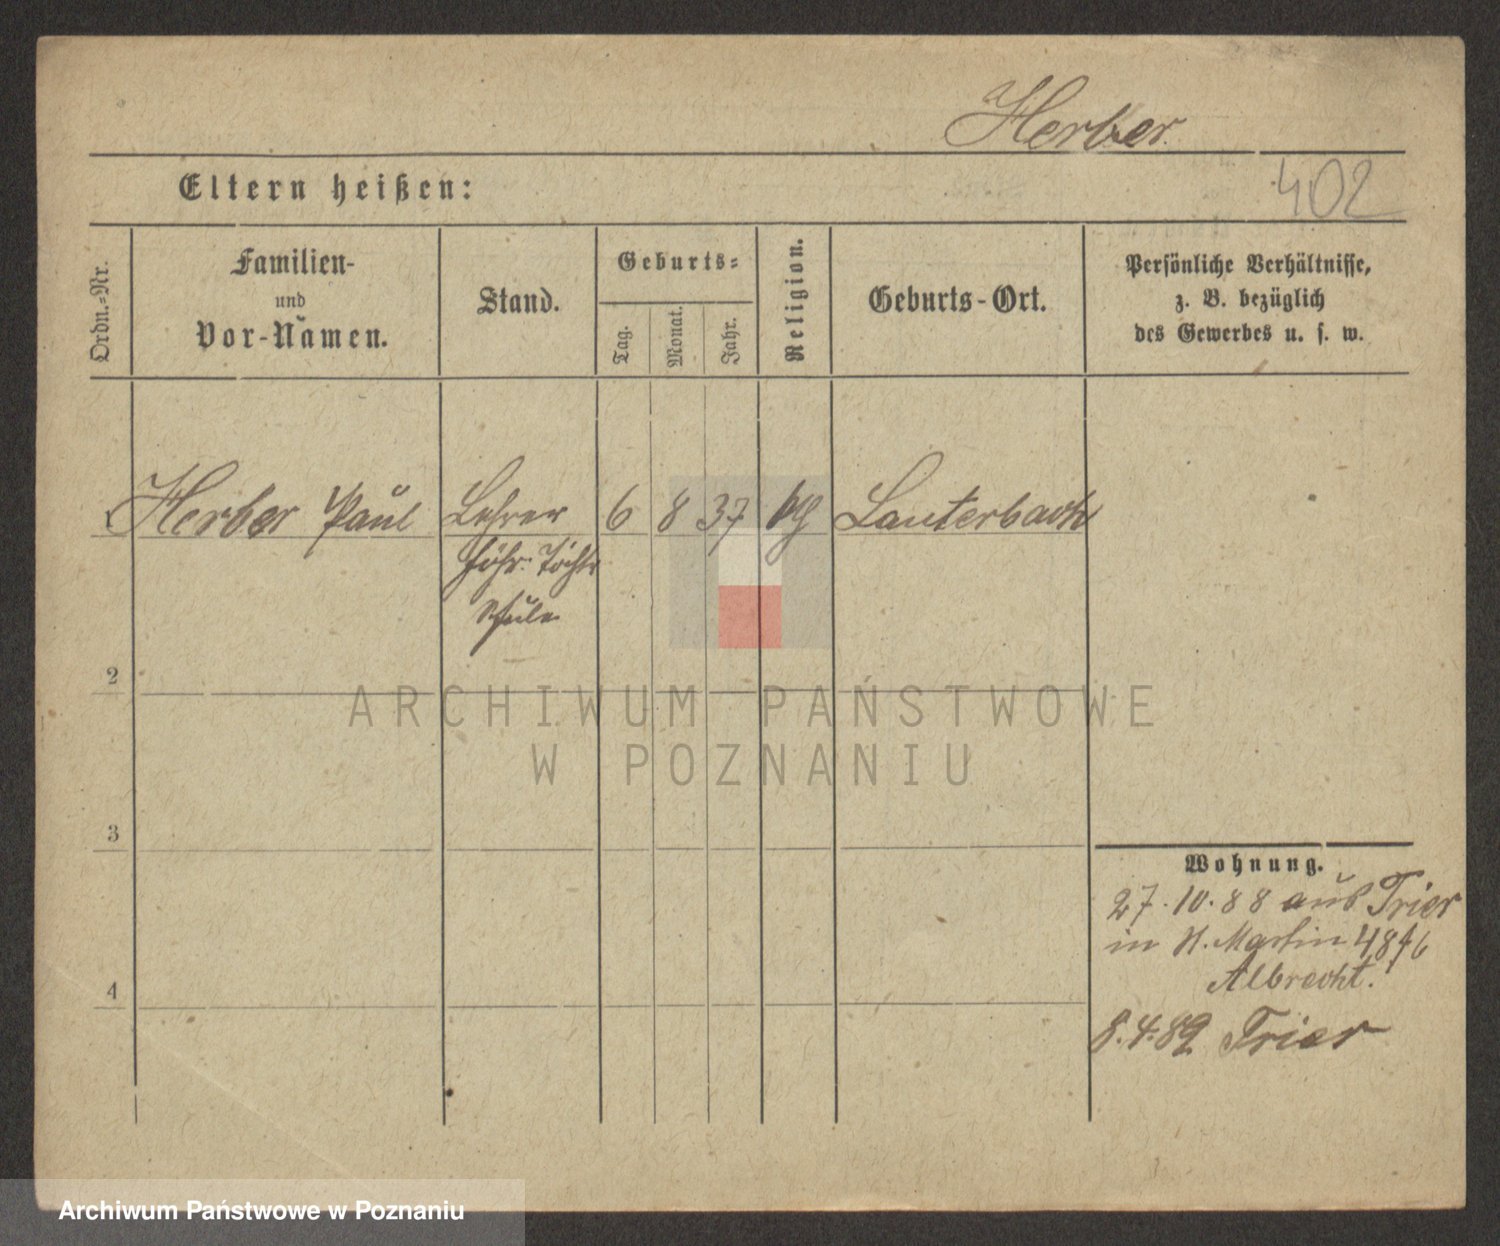 Herber
402
Eltern heißen:
Ordn.-Nr.
Familien-
und
Vor-Namen.
Stand.
Geburts-
Tag.
Monat.
Jahr.
Religion.
Geburts-Ort.
Persönliche Verhältnisse,
z. B. bezüglich
des Gewerbes u. s. w.
1 Herber Paul Lehrer 6 8 37 Lauterbach
höhr. Töcht
Schule
2
ARCHIWUM PAŃSTWOWE
W POZNANIU
3
Wohnung.
27.10.88 aus Trier
in St. Martin
Albrecht.
4
8.4.89 Trier
Archiwum Państwowe w Poznaniu